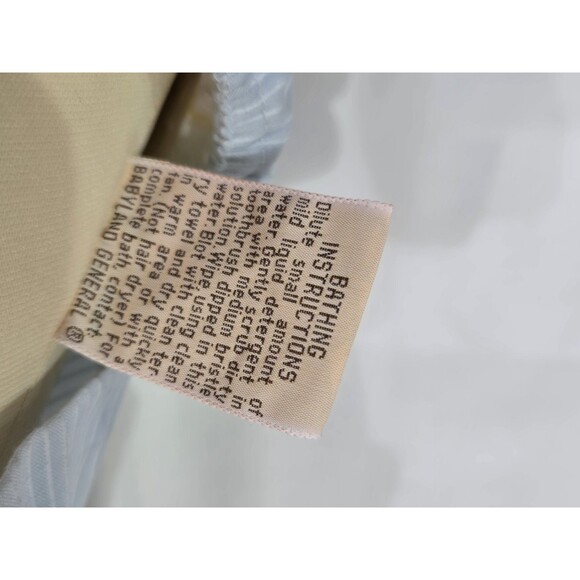 BATHING
INSTRUCTIONS
Dilute small amount of
mild liquid detergent in
water. Gently scrub dirty
area with medium bristle
toothbrush dipped in this
solution. Wipe using clean
water. Blot with clean ter
ry towel and dry quickly
in warm area or with a
fan (Not hair dryer) For a
complete bath, contact:
BABYLAND GENERAL ®